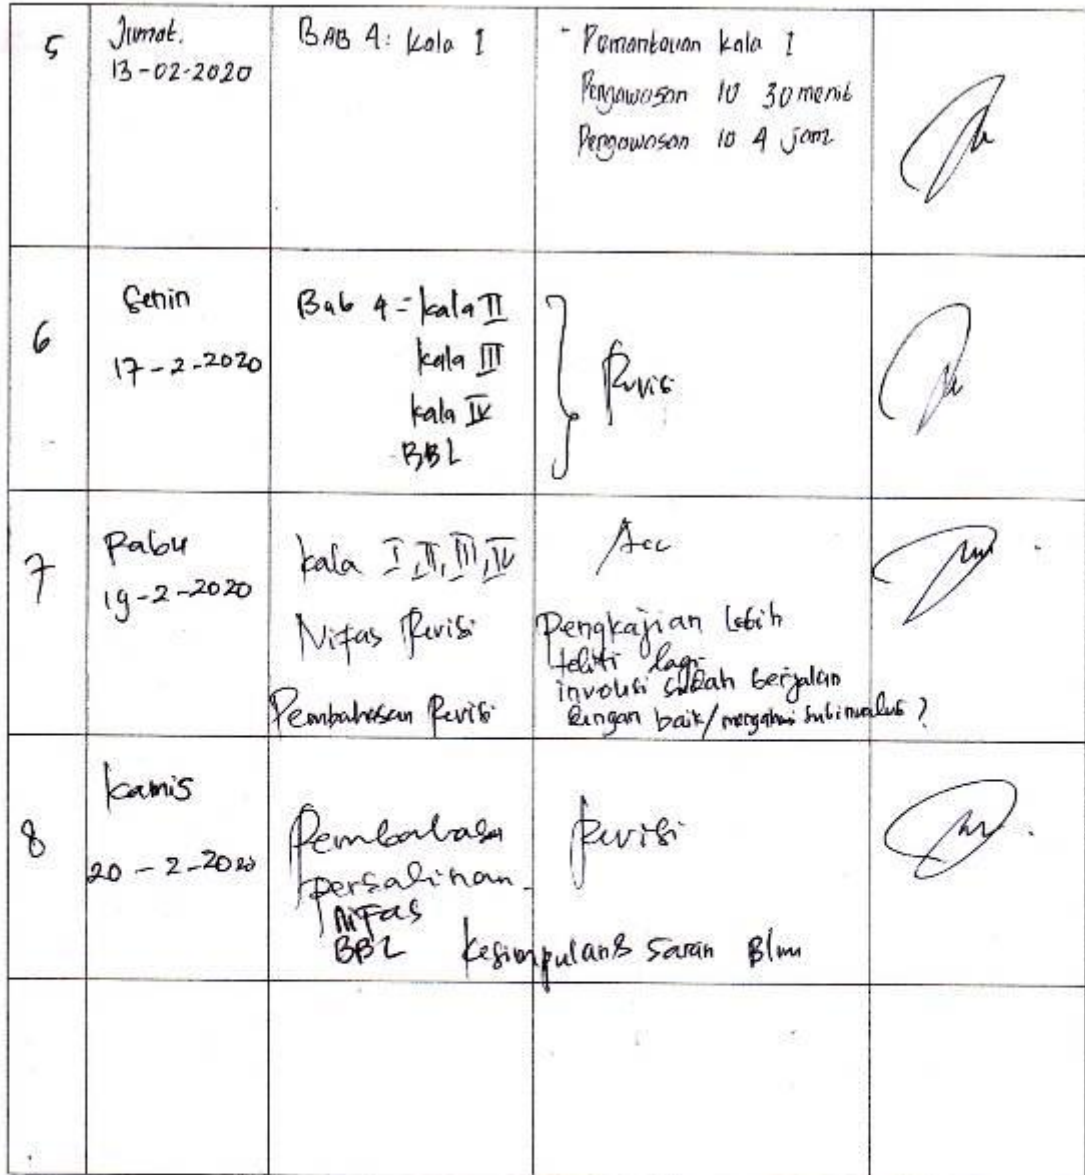 5
Jumat.
13-02-2020
BAB 4: Kala I
- Pemantauan kala I
Pengawasan 10 30 menit
Pengawasan 10 4 jam
6
Senin
17-2-2020
Bab 4 = kala II
kala III
kala IV
BBL
Revisi
7
Rabu
19-2-2020
kala I, II, III, IV
Nifas Revisi
Pembahasan Revisi
Acc
Pengkajian lebih
teliti lagi
involusi sudah berjalan
dengan baik/
?
8
Kamis
20-2-2020
Pembahasa
persalinan
Nifas
BBL
Revisi
Kesimpulan & saran Blm